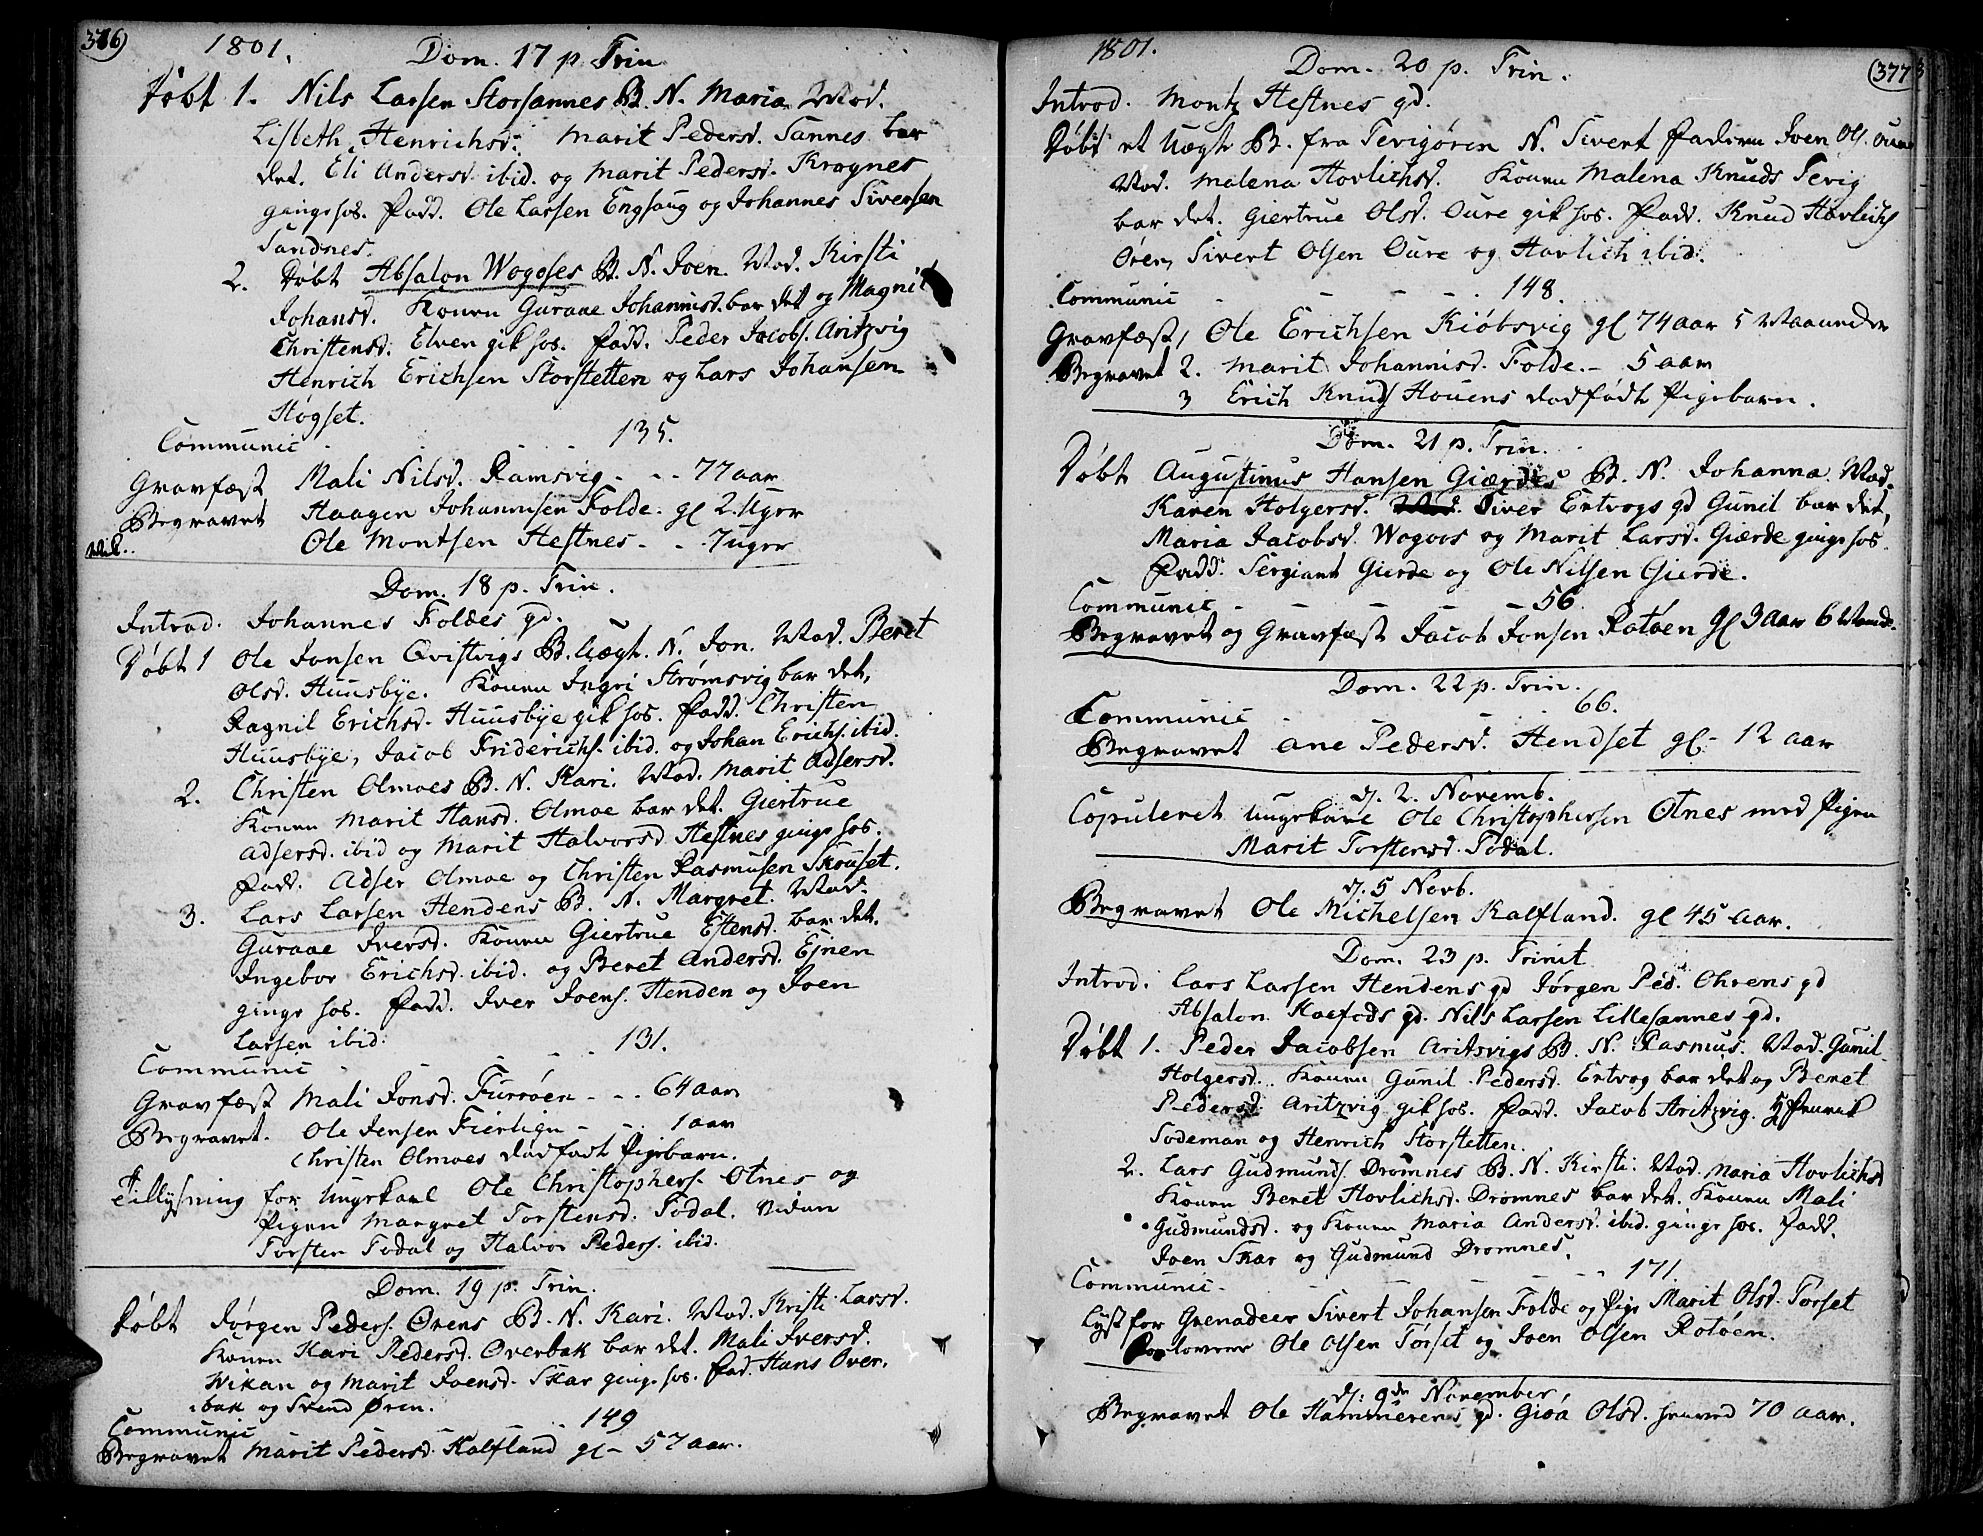 376)
1801.
Dom. 17 p. Trin
Døbt 1. Nils Larsen Storsannes B. N. Maria. Mod.
Lisbeth Henrichsd. Marit Pedersd. Sannes bar
det. Eli Andersd. ibid. og Marit Pedersd. Kragnes
ginge hos. Fadd. Ole Larsen Engsaug og Johannes Siversen
Sandnes.
2. Døbt Absalon Wogoses B. N. Joen. Mod. Kirsti
Johansd. Konen Guraae Johannisd. bar det og Magnil
Christensd. Elven gik hos. Fadd. Peder Jacobs. Aritzvig
Henrich Erichsen Storstetten og Lars Johansen
Høgset.
Communic - - - 135.
Gravfæst Mali Nilsd. Ramsvig - - - 77 aar
Begravet Haagen Johannisen Folde. gl 2. Uger
Ole Montsen Hestnes - - 7 uger
Dom. 18 p. Trin.
Introd. Johannes Foldes qd.
Døbt 1 Ole Jonsen Qvistvigs B. Uægt. N. Jon. Mod. Beret
Olsd. Huusbye. Konen Ingri Strømsvig bar det,
Ragnil Erichsd. Huusbye gik hos. Fadd. Christen
Huusbye, Jacob Friderichs. ibid. og Johan Erichs. ibid.
2. Christen Olmoes B. N. Kari. Mod. Marit Adsersd.
Konen Marit Hansd. Olmoe bar det. Giertrue
Adsersd. ibid og Marit Halvorsd Hestnes ginge hos.
Fadd. Adser Olmoe og Christen Rasmusen Skouset.
3. Lars Larsen Hendens B. N. Margret. Mod.
Guraae Iversd. Konen Giertrue Estensd. bar det.
Ingebor Erichsd. ibid. og Beret Andersd. Ejnen
ginge hos. Fadd. Iver Joens. Henden og Joen
Larsen ibid.
Communic - - - 131.
Gravfæst Mali Jonsd. Furrøen - - - 64 aar
Begravet. Ole Jensen Fierlign - - 1 aar
Christen Olmoes dødfødt Pigebarn.
Tillysning for Ungekarl Ole Christophers. Otnes og
Pigen Margret Torstensd. Todal. Viden
Torsten Todal og Halvor Peders. ibid.
Dom. 19 p. Trin.
Døbt Jørgen Peders. Ørens B. N. Kari. Mod. Kristi Larsd.
Konen Kari Pedersd. Overbak bar det. Mali Iversd.
Wikan og Marit Joensd. Skar ginge hos. Fad. Hans Over,
bak og Svend Ören.
Communic - - - 149
Begravet Marit Pedersd. Kalfland gl - 57 aar.
1801.
Dom. 20 p. Trin.
(377
Introd. Montz Hestnes qd.
Døbt et Uægte B. fra Tevigøren N. Sivert Faderen Joen Ols. Oure
Mod. Malena Hovlichsd. Konen Malena Knuds Tevig
bar det. Giertrue Olsd. Oure gik hos. Fadd. Knud Hovlichs
Øren, Sivert Olsen Oure og Hovlich ibid.
Communic - - - - 148.
Gravfæst 1 Ole Erichsen Kiöbsvig gl 74 aar 5 Maaneder
Begravet 2. Marit Johannisd. Folde. - 5 aar
3 Erich Knuds Houens dødfødt Pigebarn.
Dom. 21 p. Trin.
Døbt Augustinus Hansen Giærdes B. N. Johanna. Mod.
Karen Holgersd. Siver Ertvogs qd Gunil bar det,
Maria Jacobsd. Wogoos og Marit Larsd. Giærde ginge hos.
Fadd. Sergiant Gierde og Ole Nilsen Gierde.
Communic - - - - 56
Begravet og Gravfæst Jacob Jonsen Rotöen gl 3 aar 6
Dom. 22 p. Trin.
Communic - - - 66.
Begravet Ane Pedersd. Hendset gl - 12 aar
d. 2. Novemb.
Copuleret Ungekarl Ole Christophersen Otnes med Pigen
Marit Torstensd. Todal.
d. 5 Novb.
Begravet Ole Michelsen Kalfland. gl 45 aar.
Dom. 23 p. Trinit
Introd. Lars Larsen Hendens qd Jørgen Ped. Ohrens qd
Absalon Koefods qd. Nils Larsen Lillesannes qd.
Døbt 1. Peder Jacobsen Aritsvigs B. N. Rasmus. Mod. Gunil
Holgersd. Konen Gunil Pedersd. Ertvog bar det og Beret
Pedersd. Aritzvig gik hos. Fadd. Jacob Aritzvig.
Sodeman og Henrich Storstetten.
2. Lars Gudmunds Dromnes B. N. Kirsti. Mod. Maria Hovlichsd
Konen Beret Hovlichsd. Dromnes bar det. Konen Mali
Gudmundsd. og Konen Maria Andersd. ibid. ginge hos. Fadd.
Joen Skar og Gudmund Dromnes.
Communic - - - - - 171.
Lyst for Grenadeer Sivert Johansen Folde og Pige Marit Olsd. Torset
Forlovere Ole Olsen Torset og Joen Olsen Rotöen.
d. 9de November,
Begravet Ole Hammerens qd. Giöa Olsd. henved 70 aar.